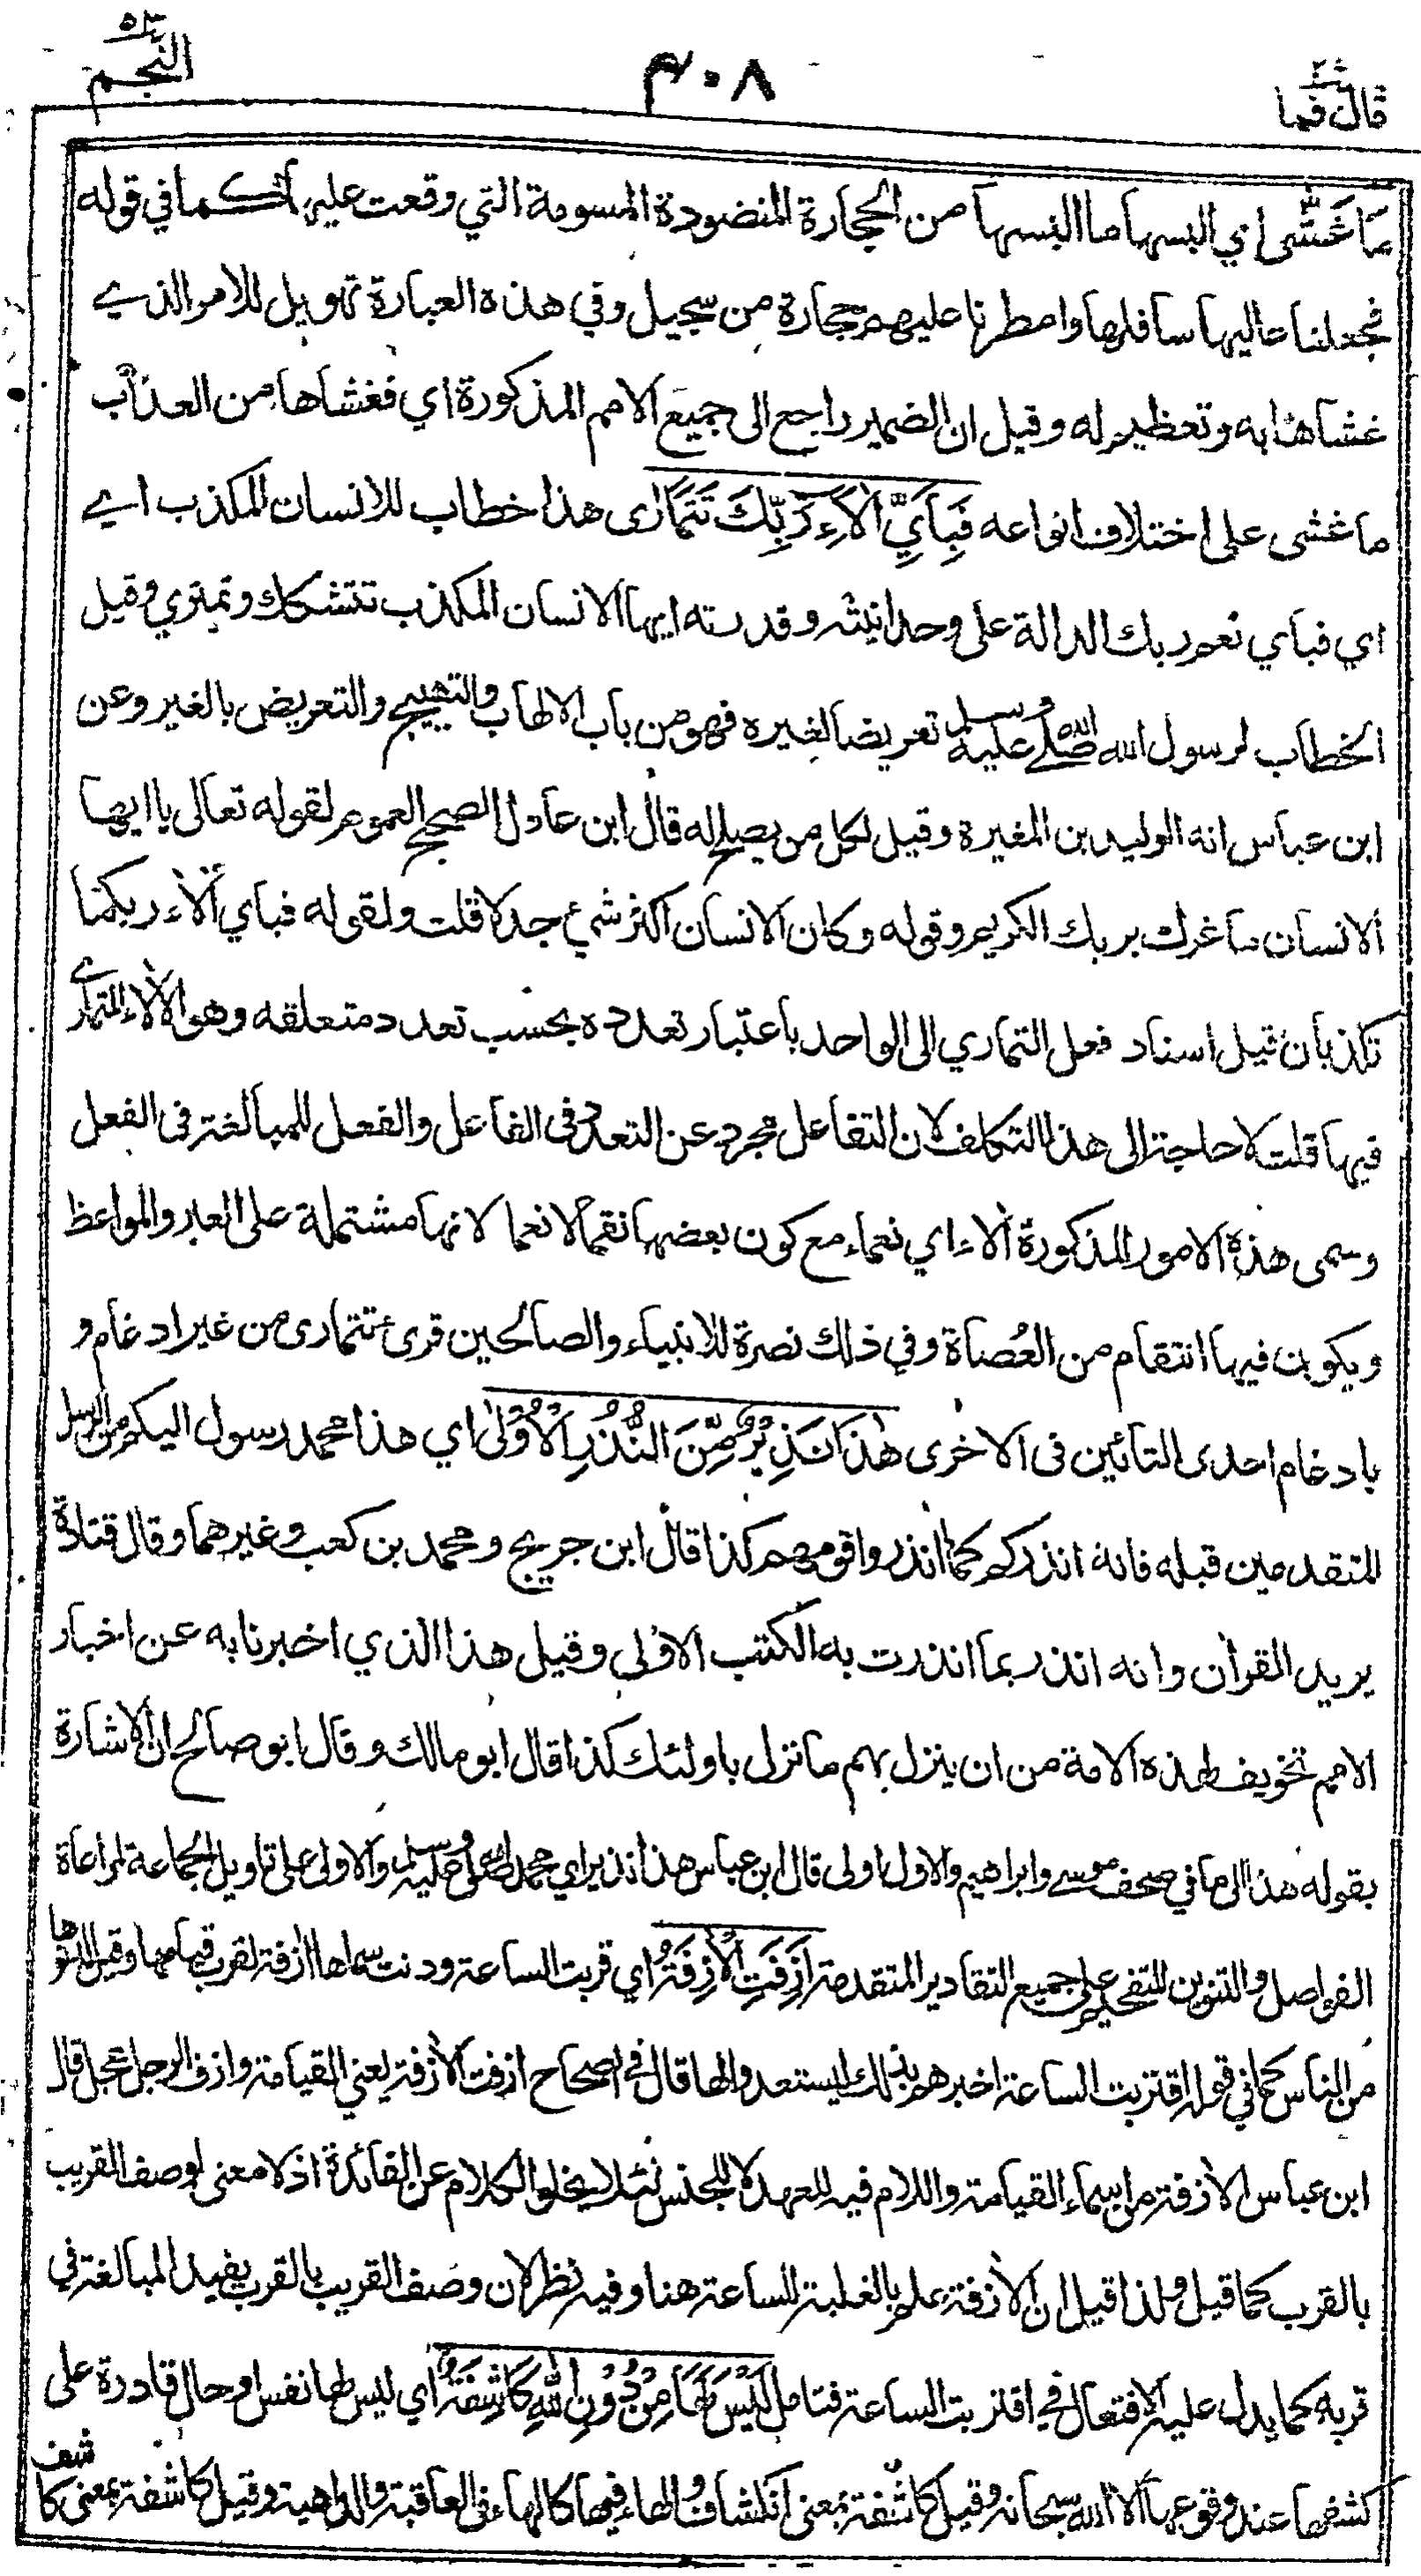 النجم ٥٣
٣٠٨
قال فما
مَا غَشّٰى اي البسها ما البسها من الحجارة المنضودة المسومة التي وقعت عليها كما في قوله
فجعلنا عاليها سافلها وامطرنا عليهم حجارة من سجيل وفي هذه العبارة تهويل للامر الذي
غشاها به وتعظيم له وقيل ان الضمير راجع الى جميع الامم المذكورة اي فغشاها من العذاب
ما غشى على اختلاف انواعه فَبِأَيِّ اٰلَاءِ رَبِّكَ تَتَمَارٰى هذا خطاب للانسان المكذب اي
اي فباي نعم ربك الدالة على وحدانيته وقدرته ايها الانسان المكذب تتشكك وتمتري وقيل
الخطاب لرسول الله صلى الله عليه وسلم تعريضا لغيره فهو من باب الالهاب والتهييج والتعريض بالغير وعن
ابن عباس انه الوليد بن المغيرة وقيل لكل من يصلح له قال ابن عادل الصحيح العموم لقوله تعالى يا ايها
الانسان ما غرك بربك الكريم وقوله وكان الانسان اكثر شيء جدلا قلت ولقوله فباي آلاء ربكما
تكذبان قيل اسناد فعل التماري الى الواحد باعتبار تعدده بحسب تعدد متعلقه وهو الآلاء المتمارى
فيها قلت لا حاجة الى هذا التكلف لان التفاعل مجرد عن التعدد في الفاعل والفعل للمبالغة في الفعل
وسمى هذه الامور المذكورة آلاء اي نعماء مع كون بعضها نقما لا نعما لانها مشتملة على العبر والمواعظ
ويكون فيها انتقام من العُصاة وفي ذلك نصرة للانبياء والصالحين قرئ تتمارى من غير ادغام و
بادغام احدى التائين في الاخرى هٰذَا نَذِيْرٌ مِّنَ النُّذُرِ الْاُوْلٰى اي هذا محمد رسول اليكم من الرسل
المتقدمين قبله فانه انذركم كما انذروا قومهم كذا قال ابن جريج ومحمد بن كعب وغيرهما وقال قتادة
يريد القرآن وانه انذر بما انذرت به الكتب الاولى وقيل هذا الذي اخبرنا به عن اخبار
الامم تخويف لهذه الامة من ان ينزل بهم ما نزل باولئك كذا قال ابو مالك وقال ابو صالح ان الاشارة
بقوله هذا الى ما في صحف موسى وابراهيم والاول اولى قال ابن عباس هذا نذير اي محمد صلى الله عليه وسلم والاولى على تاويل الجماعة لمراعاة
الفواصل والتنوين للتفخيم على جميع التقادير المتقدمة اَزِفَتِ الْاٰزِفَةُ اي قربت الساعة ودنت سماها آزفة لقرب قيامها وقيل لدنوها
من الناس كما في قوله اقتربت الساعة اخبرهم بذلك ليستعدوا لها قال في الصحاح ازفت الآزفة يعني القيامة وازف الرجل عجل قال
ابن عباس الآزفة من اسماء القيامة واللام فيه للعهد لا للجنس لئلا يخلو الكلام عن الفائدة اذ لا معنى لوصف القريب
بالقرب كما قيل ولذا قيل ان الآزفة علم بالغلبة للساعة هنا وفيه نظر لان وصف القريب بالقرب يفيد المبالغة في
قربه كما يدل عليه الافتعال في اقتربت الساعة فتامل لَيْسَ لَهَا مِنْ دُوْنِ اللّٰهِ كَاشِفَةٌ اي ليس لها نفس او حال قادرة على
كشفها عند وقوعها الا الله سبحانه وقيل كاشفة بمعنى انكشاف والهاء فيها كالهاء في العاقبة والداهية وقيل كاشفة بمعنى كاشف